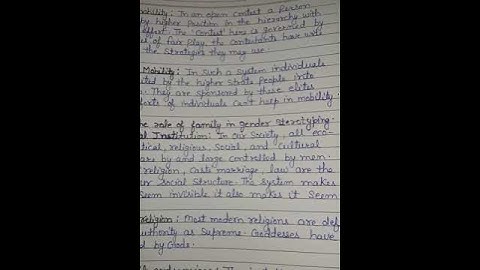 mobility: In an open contest a Person
by higher Position in the hierarchy with
effort. The 'Contest' here is governed by
of fair Play, the Contestants have wide
the Strategies they may use.
Mobility: In such a system individuals
by the higher Strata People into
They are sponsored by these elites
efforts of individuals can't help in mobility.
role of family in gender stereotyping:
Institution: In Our Society, all eco-
tical, religious, Social, and Cultural
are by and large controlled by men.
religion, Caste marriage, law are the
Social Structure. The System makes
seem invisible it also makes it Seem
religion: Most modern religions are def
authority as Supreme. Goddesses have
d by Gods.